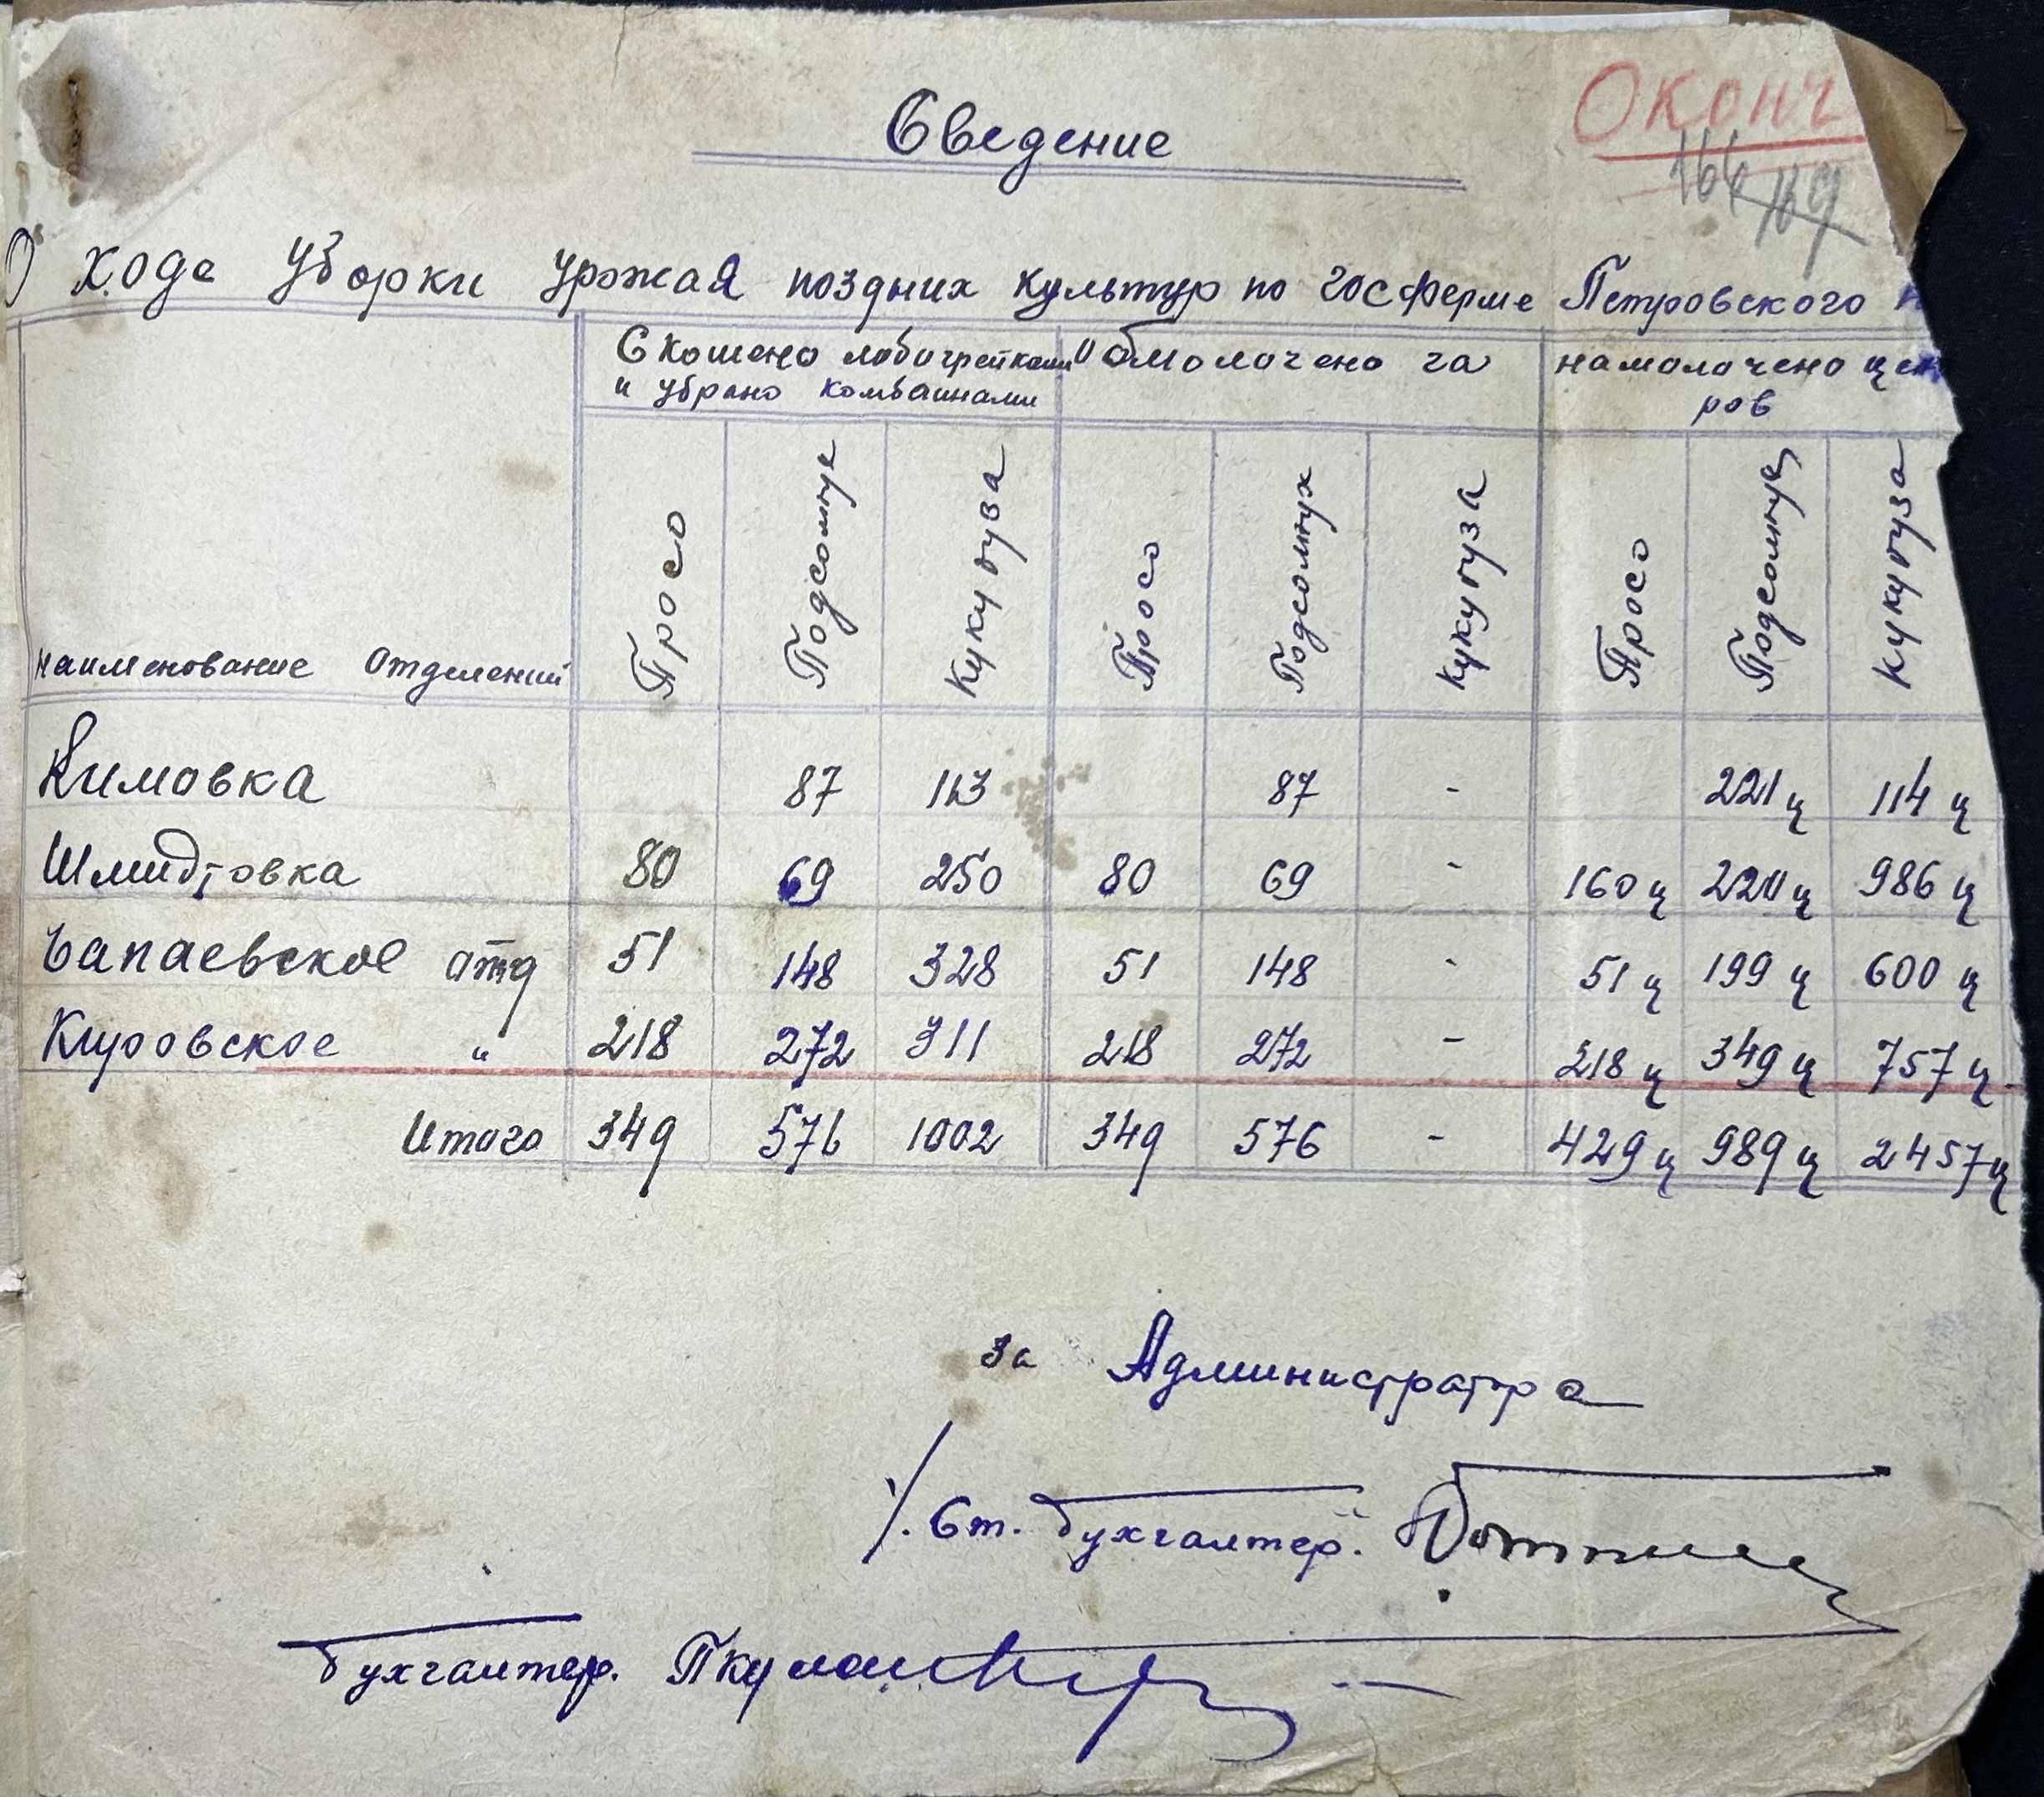 Оконч
Сведение
164 169
О ходе уборки урожая поздних культур по госферме Петровского
наименование отделений | Скошено лобогрейками и убрано комбаинами | Обмолочено га | намолочено цен ров
Просо | Подсолнух | Кукуруза | Просо | Подсолнух | Кукуруза | Просо | Подсолнух | Кукуруза
Климовка | | 87 | 113 | | 87 | - | | 221 ц | 114 ц
Шмидтовка | 80 | 69 | 250 | 80 | 69 | - | 160 ц | 220 ц | 986 ц
Чапаевское отд | 51 | 148 | 328 | 51 | 148 | - | 51 ц | 199 ц | 600 ц
Кировское " | 218 | 272 | 311 | 218 | 272 | - | 218 ц | 349 ц | 757 ц
Итого | 349 | 576 | 1002 | 349 | 576 | - | 429 ц | 989 ц | 2457 ц
За Администратора
Ст. бухгалтер.
бухгалтер.